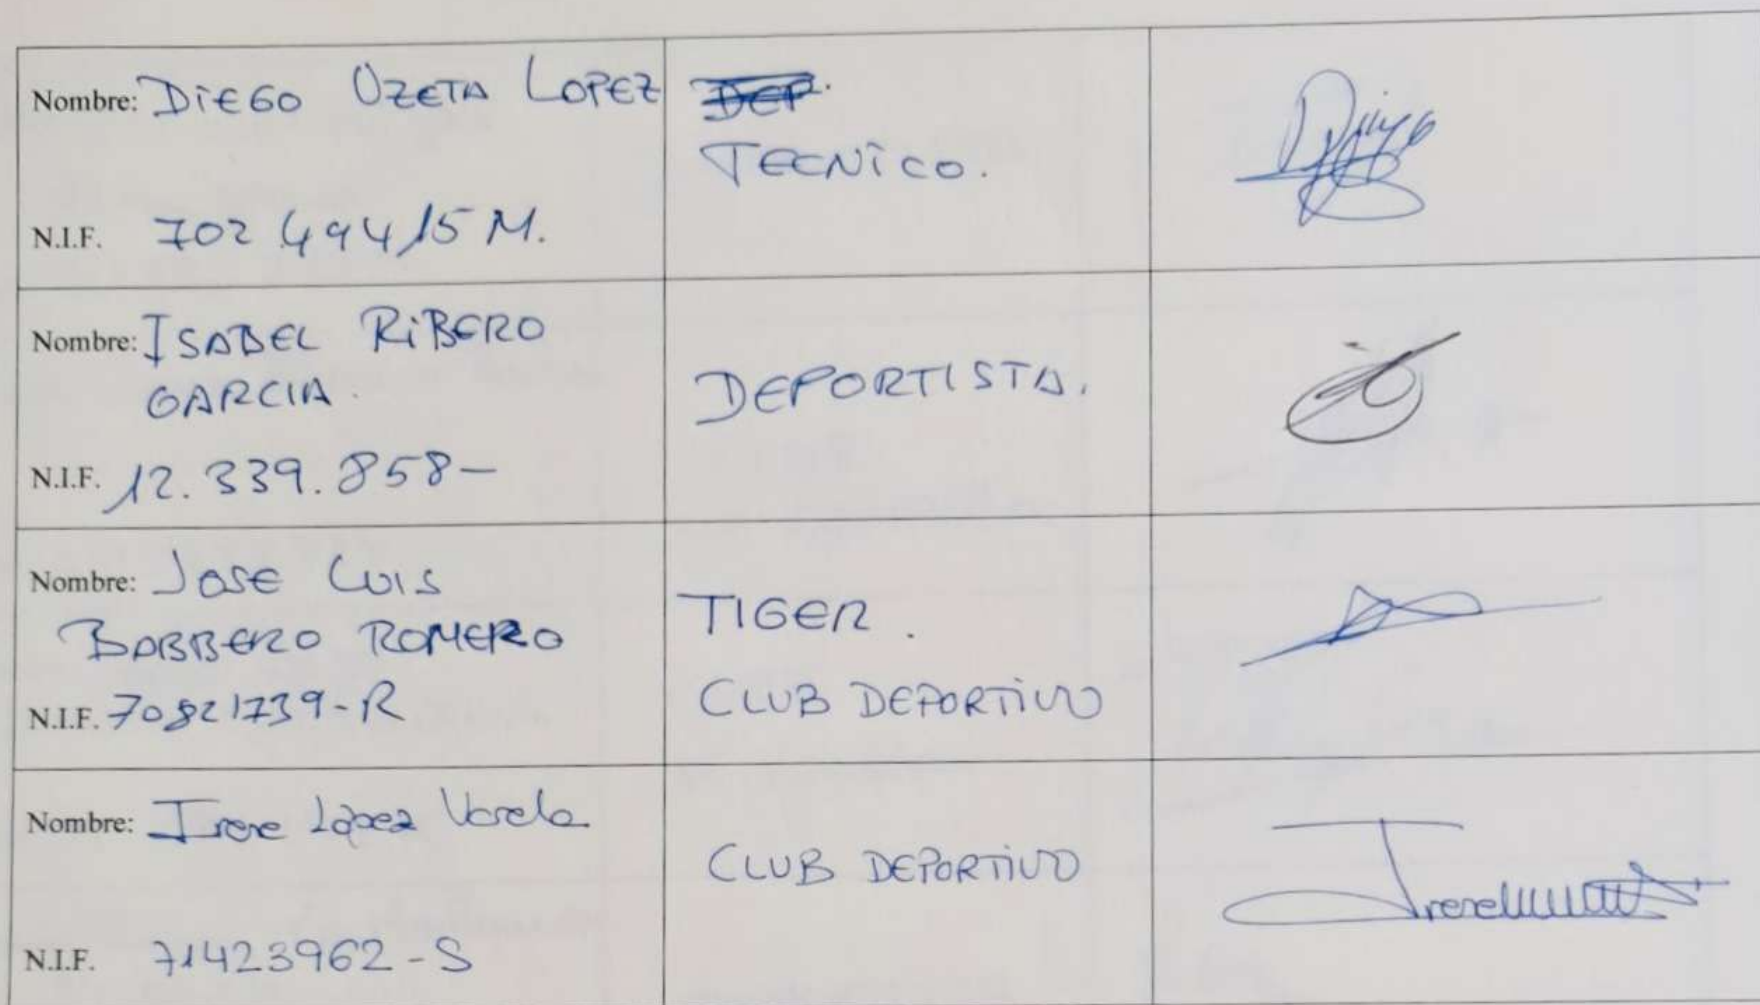 Nombre: DIEGO UZETA LOPEZ
N.I.F. 70249415 M.
DEP.
TECNICO.
Nombre: ISABEL RIBERO
GARCIA.
N.I.F. 12.339.858-
DEPORTISTA.
Nombre: JOSE LUIS
BARBERO ROMERO
N.I.F. 70821739-R
TIGER.
CLUB DEPORTIVO
Nombre: Irene López Varela
N.I.F. 71423962-S
CLUB DEPORTIVO